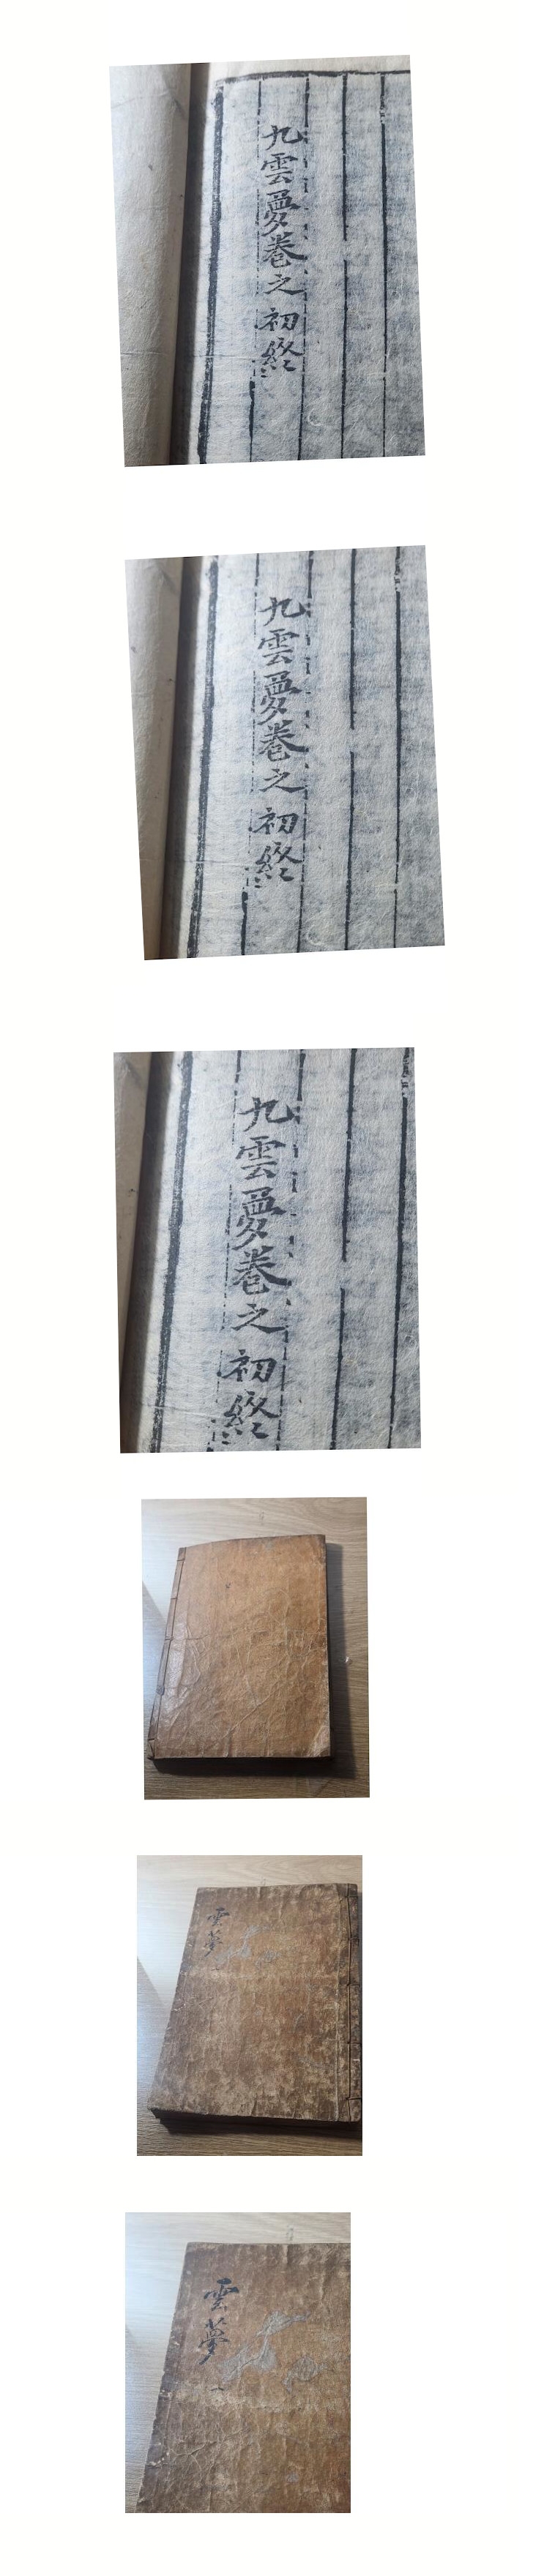 九雲夢卷之初終
九雲夢卷之初終
九雲夢卷之初終
雲夢
雲夢